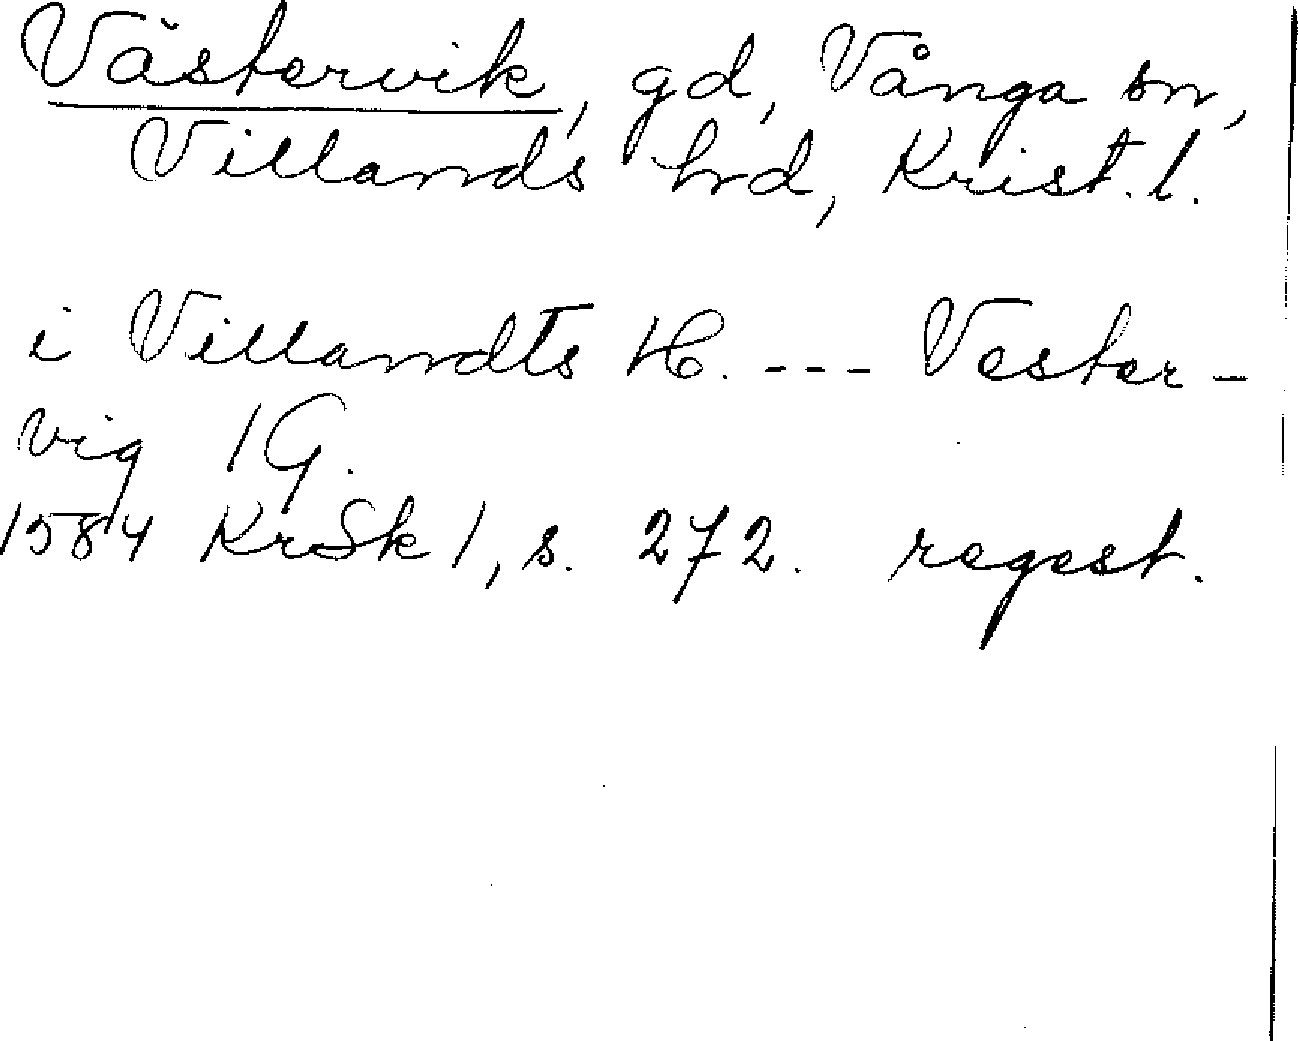 Västervik, gd, Vånga sn,
Villands hrd, Krist. l.
i Villandts H. --- Vester-
vig 1 G.
1584 KrSk 1, s. 272. regest.